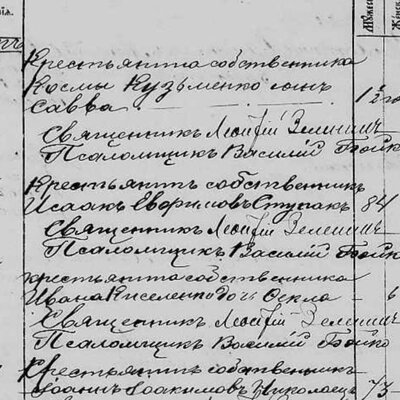 Крестьянина собственника
Космы Кузьменко сын
Савва 1½ го
Священникъ Леонтій Зелинскі
Псаломщикъ Василій Бойко
Крестьянинъ собственникъ
Исаакъ Евфимовъ Ступакъ 84
Священникъ Леонтій Зелинскі
Псаломщикъ Василій Бойко
крестьянина собственника
Ивана Киселенки дочь 6
Священникъ Леонтій Зелинскі
Псаломщикъ Василій Бойко
Крестьянинъ собственникъ
Іоаннъ Іоакимовъ Николаец 73